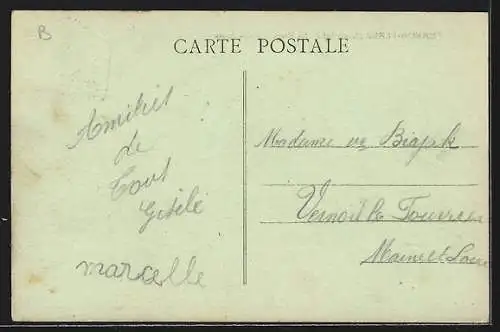 B
CARTE POSTALE
Amitiés
de
Tout
Gisèle
marcelle
Madame ve
Vernoil le Fourrier
Maine et Loire